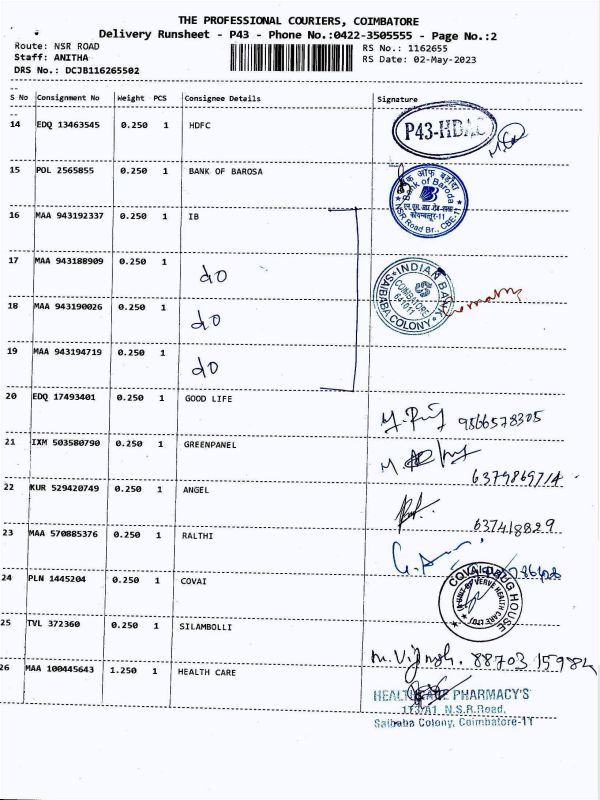 THE PROFESSIONAL COURIERS, COIMBATORE
Delivery Runsheet - P43 - Phone No.:0422-3505555 - Page No.:2
Route: NSR ROAD RS No.: 1162655
Staff: ANITHA RS Date: 02-May-2023
DRS No.: DCJB116265502
S No Consignment No Weight PCS Consignee Details Signature
14 EDQ 13463545 0.250 1 HDFC
P43-HDFC
15 POL 2565855 0.250 1 BANK OF BAROSA
बैंक ऑफ बड़ौदा
Bank of Baroda
कोयम्बतूर-11
NSR Road Br., CBE-11
16 MAA 943192337 0.250 1 IB
17 MAA 943188909 0.250 1 do
INDIAN BANK
COIMBATORE
641011
SAIBABA COLONY
18 MAA 943190026 0.250 1 do
19 MAA 943194719 0.250 1 do
20 EDQ 17493401 0.250 1 GOOD LIFE
9566578305
21 IXM 503580790 0.250 1 GREENPANEL
6379869714
22 KUR 529420749 0.250 1 ANGEL
637418829
23 MAA 570885376 0.250 1 RALTHI
24 PLN 1445204 0.250 1 COVAI
COVAI DRUG HOUSE
(A UNIT OF VERVE HEALTH CARE LTD)
25 TVL 372360 0.250 1 SILAMBOLLI
M. Vignesh. 88703 15984
26 MAA 100445643 1.250 1 HEALTH CARE
HEALTH CARE PHARMACY'S
113/A1, N.S.R.Road,
Saibaba Colony, Coimbatore-11